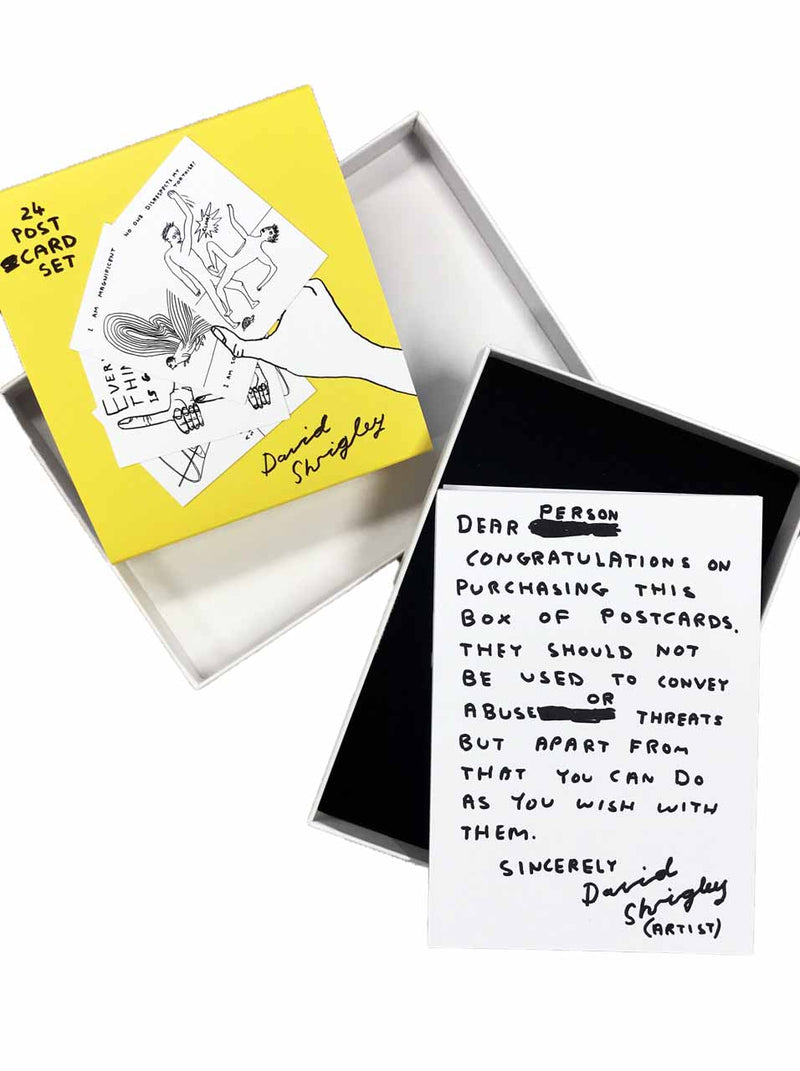 24
POST
CARD
SET
I AM MAGNIFICENT
NO ONE DISRESPECTS MY
TORTOISE!
EVERY
THIN
IS G
I AM SO
David
Shrigley
DEAR PERSON
CONGRATULATIONS ON
PURCHASING THIS
BOX OF POSTCARDS.
THEY SHOULD NOT
BE USED TO CONVEY
ABUSE OR THREATS
BUT APART FROM
THAT YOU CAN DO
AS YOU WISH WITH
THEM.
SINCERELY
David
Shrigley
(ARTIST)